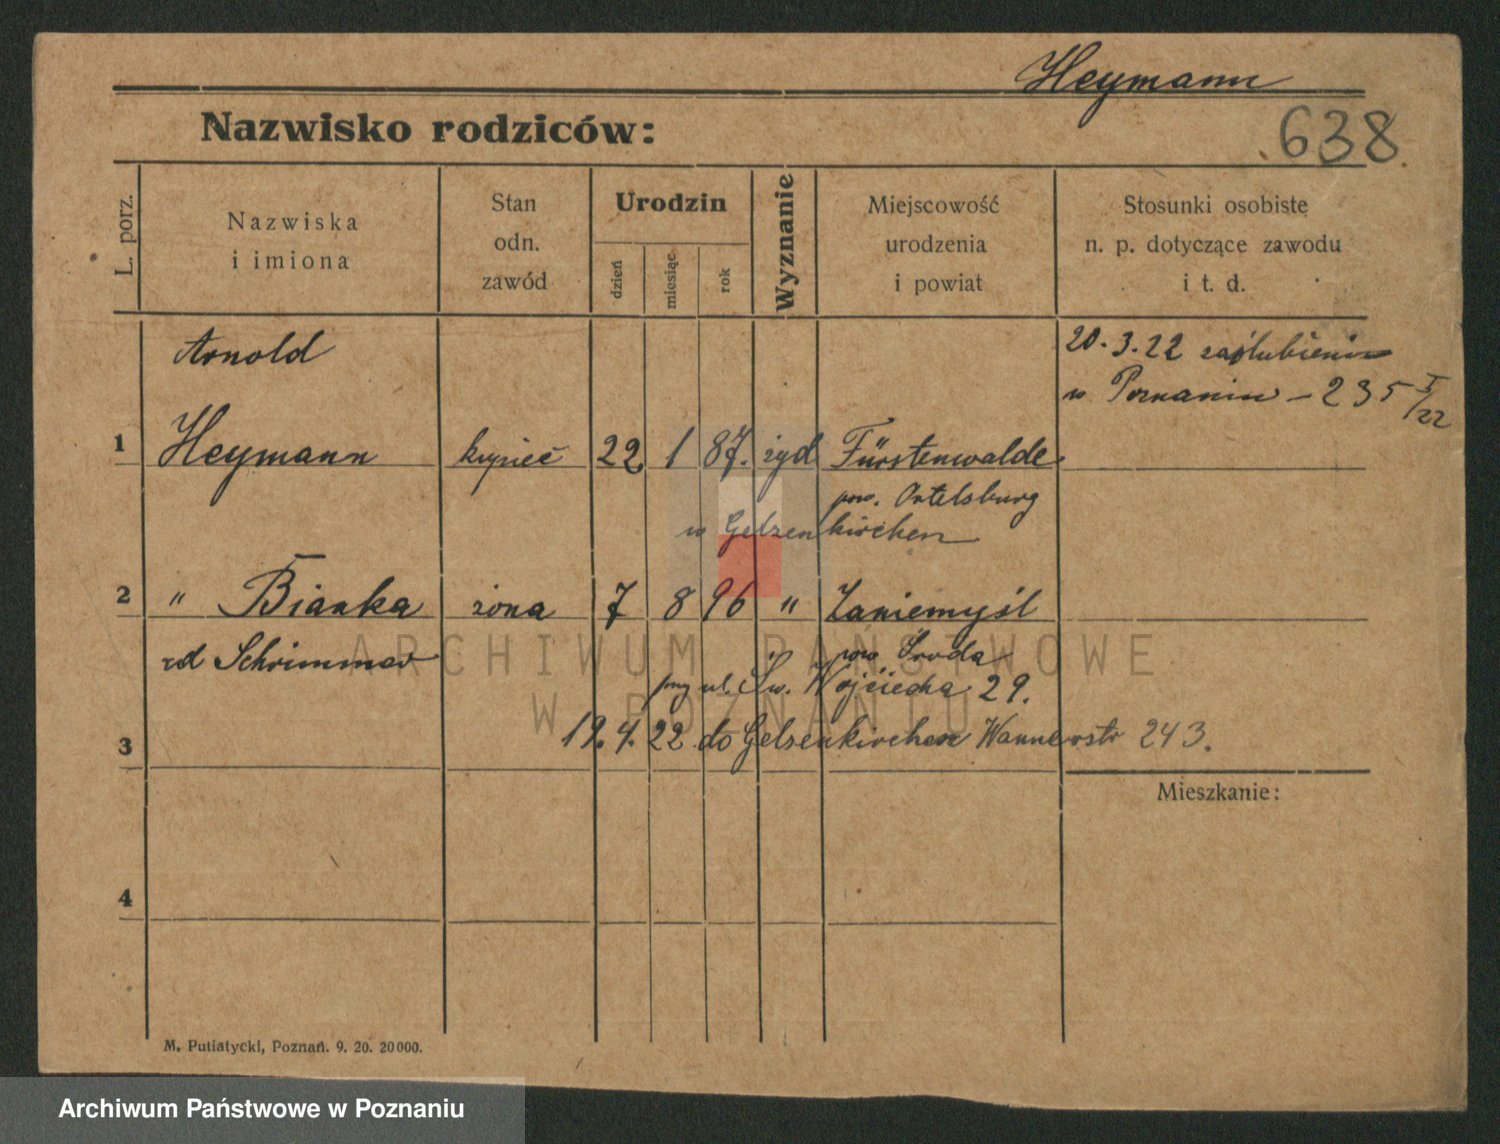 Heymann
Nazwisko rodziców:
638
L. porz.
Nazwiska
i imiona
Stan
odn.
zawód
Urodzin
dzień
miesiąc
rok
Wyznanie
Miejscowość
urodzenia
i powiat
Stosunki osobiste
n. p. dotyczące zawodu
i t. d.
Arnold
20.3.22 zaślubieni
w Poznaniu – 235 I/22
1 Heymann kupiec 22. 1 87. żyd Fürstenwalde
pow. Ortelsburg
w Gelzenkirchen
2 " Bianka żona 7 8 96 " Zaniemyśl
zd Schrimmer pow Środa
przy ul. Św. Wojciecha 29.
3 19.4.22 do Gelsenkirchen Wannerstr 243.
Mieszkanie:
4
M. Putiatycki, Poznań. 9. 20. 20000.
ARCHIWUM PAŃSTWOWE
W POZNANIU
Archiwum Państwowe w Poznaniu